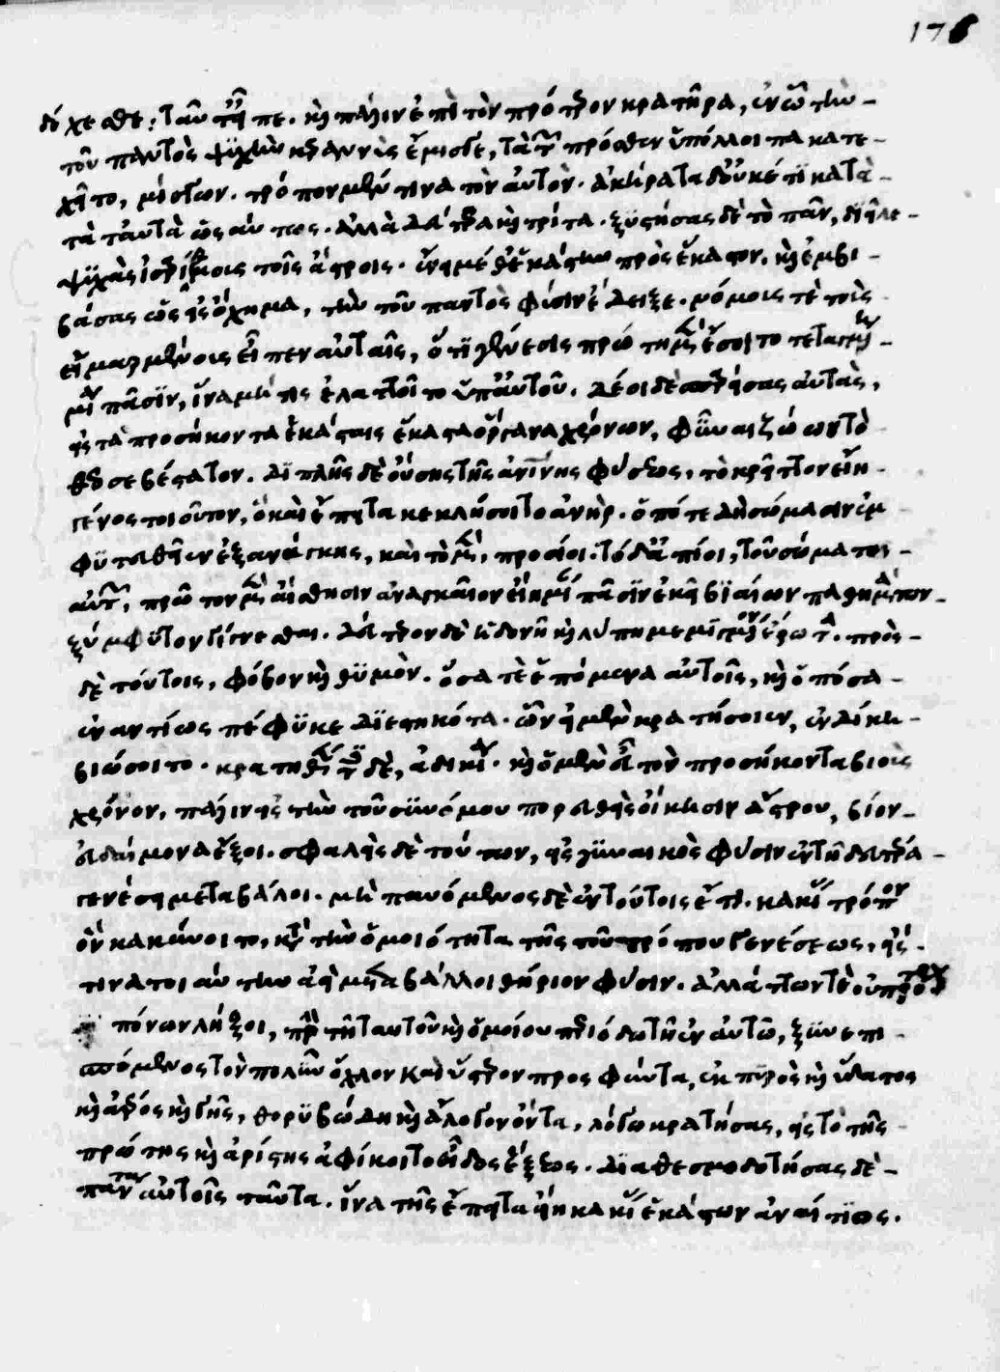 178
δέχεσθε: Ταῦτ' εἶπε. καὶ πάλιν ἐπὶ τὸν πρότερον κρατῆρα, ἐν ᾧ τὴν
τοῦ παντὸς ψυχὴν κεραννὺς ἔμισγε, τὰ τῶν πρόσθεν ὑπόλοιπα κατε-
χεῖτο, μίσγων. τρόπον μέν τινα τὸν αὐτὸν. ἀκήρατα δ' οὐκέτι κατὰ
τὰ ταὐτὰ ὡσαύτως. ἀλλὰ δεύτερα καὶ τρίτα. ξυστήσας δὲ τὸ πᾶν, διεῖλε
ψυχὰς ἰσαρίθμους τοῖς ἄστροις. ἔνειμέ θ' ἑκάστην πρὸς ἕκαστον. καὶ ἐμβι-
βάσας ὡς εἰς ὄχημα, τὴν τοῦ παντὸς φύσιν ἔδειξε. νόμους τὲ τοὺς
εἱμαρμένους εἶπεν αὐταῖς, ὅτι γένεσις πρώτη μὲν ἔσοιτο τεταγμένη
μία πᾶσιν, ἵνα μή τις ἐλαττοῖτο ὑπ' αὐτοῦ. δέοι δὲ σπαρείσας αὐτὰς,
εἰς τὰ προσήκοντα ἑκάσταις ἕκαστα ὄργανα χρόνων, φῦναι ζώων τὸ
θεοσεβέστατον. διπλῆς δὲ οὔσης τῆς ἀνθρωπίνης φύσεως, τὸ κρεῖττον εἴη
γένος τοιοῦτον, ὃ καὶ ἔπειτα κεκλήσοιτο ἀνήρ. ὁπότε δὴ σώμασιν ἐμ
φυτευθεῖεν ἐξ ἀνάγκης, καὶ τὸ μὲν, προσίοι. τὸ δ' ἀπίοι, τοῦ σώματος
αὐτῶν, πρῶτον μὲν αἴσθησιν ἀναγκαῖον εἴη μίαν πᾶσιν ἐκ βιαίων παθημάτων
ξύμφυτον γίγνεσθαι. δεύτερον δὲ ἡδονῇ καὶ λύπῃ μεμιγμένον ἔρωτα. πρὸς
δὲ τούτοις, φόβον καὶ θυμὸν. ὅσα τὲ ἑπόμενα αὐτοῖς, καὶ ὁπόσα
ἐναντίως πέφυκε διεστηκότα. ὧν εἰ μὲν κρατήσοιεν, ἐν δίκῃ
βιώσοιντο. κρατηθέντες δὲ, ἀδικίᾳ. καὶ ὁ μὲν εὖ τὸν προσήκοντα βιοὺς
χρόνον, πάλιν εἰς τὴν τοῦ συννόμου πορευθεὶς οἴκησιν ἄστρου, βίον
εὐδαίμονα ἕξοι. σφαλεὶς δὲ τούτων, εἰς γυναικὸς φύσιν ἐν τῇ δευτέρᾳ
γενέσει μεταβάλοι. μὴ παυόμενος δὲ ἐν τούτοις ἔτι. κακίας τρόπον
ὃν κακύνοιτο, κατὰ τὴν ὁμοιότητα τῆς τοῦ τρόπου γενέσεως, εἴς
τινα τοιαύτην ἀεὶ μεταβάλλοι θήριον φύσιν. ἀλλάττων τὲ οὐ πρότερον
πόνων λήξοι, πρὶν τῇ ταυτοῦ καὶ ὁμοίου περιόδῳ τῇ ἐν αὐτῷ, ξυνεπι
σπόμενος τὸν πολὺν ὄχλον καὶ ὕστερον προσφύντα, ἐκ πυρὸς καὶ ὕδατος
καὶ ἀέρος καὶ γῆς, θορυβώδη καὶ ἄλογον ὄντα, λόγῳ κρατήσας, εἰς τὸ τῆς
πρώτης καὶ ἀρίστης ἀφίκοιτο εἶδος ἕξεως. διαθεσμοθετήσας δὲ
πάντα αὐτοῖς ταῦτα. ἵνα τῆς ἔπειτα εἴη κακίας ἑκάστων ἀναίτιος.